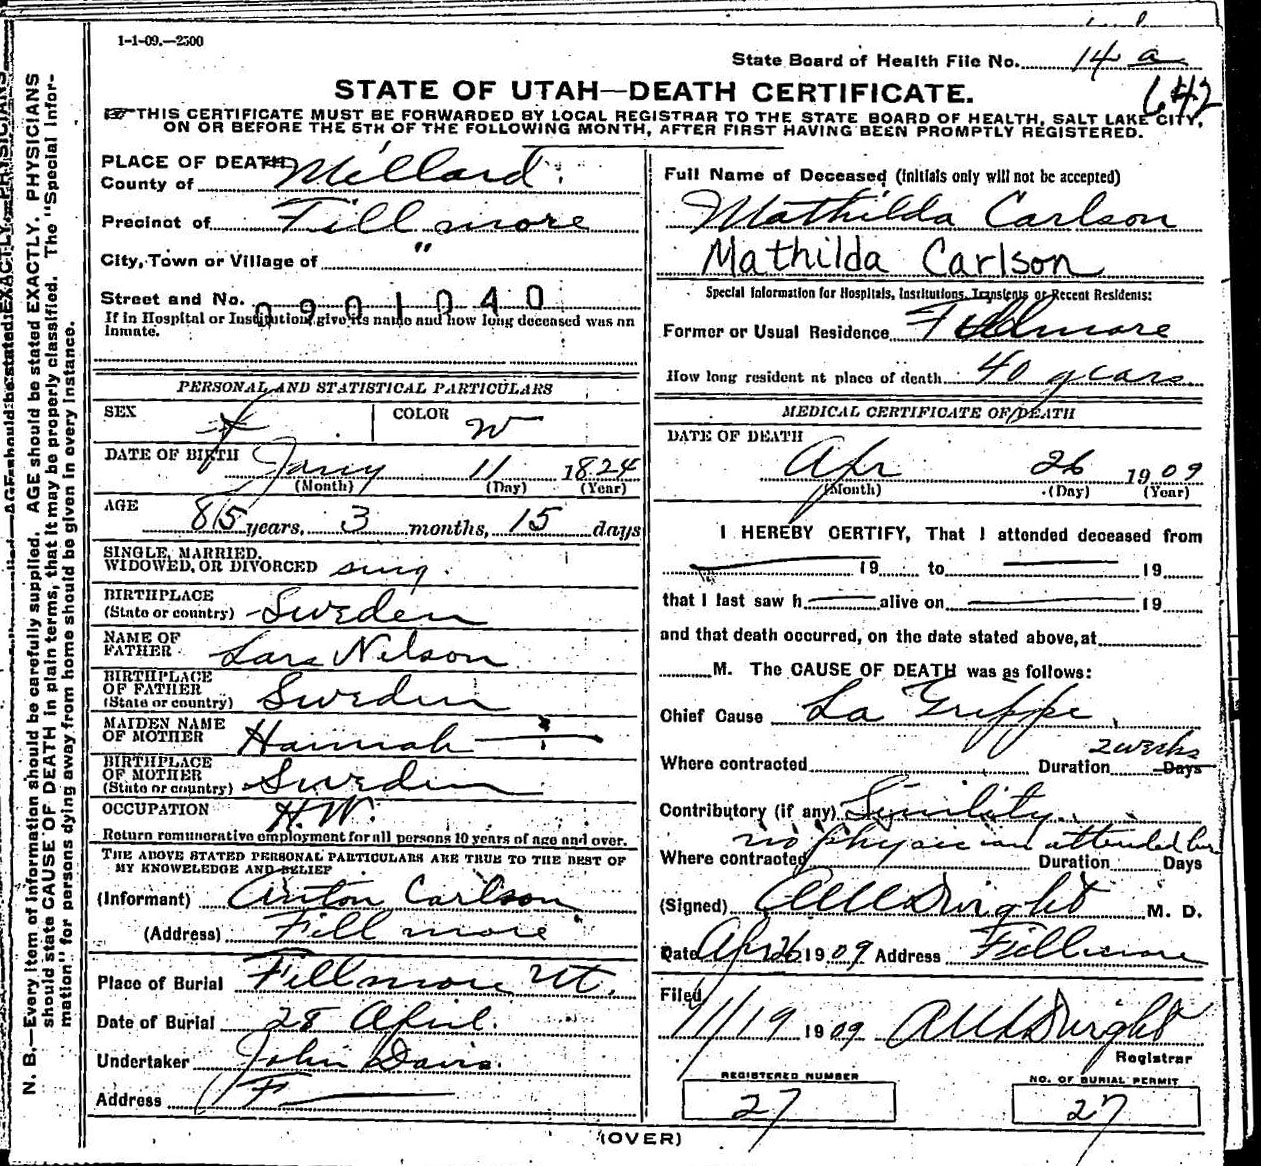 1-1-09.—2500
State Board of Health File No. 14 a
642
STATE OF UTAH—DEATH CERTIFICATE.
THIS CERTIFICATE MUST BE FORWARDED BY LOCAL REGISTRAR TO THE STATE BOARD OF HEALTH, SALT LAKE CITY,
ON OR BEFORE THE 5TH OF THE FOLLOWING MONTH, AFTER FIRST HAVING BEEN PROMPTLY REGISTERED.
N. B.—Every item of information should be carefully supplied. AGE should be stated EXACTLY. PHYSICIANS
should state CAUSE OF DEATH in plain terms, that it may be properly classified. The "Special Infor-
mation" for persons dying away from home should be given in every instance.
PLACE OF DEATH
County of Millard.
Precinct of Fillmore
City, Town or Village of "
Street and No.
0901040
If in Hospital or Institution, give its name and how long deceased was an
inmate.
PERSONAL AND STATISTICAL PARTICULARS
SEX f. COLOR W
DATE OF BIRTH Jany 11 1824
(Month) (Day) (Year)
AGE
85 years, 3 months, 15 days
SINGLE, MARRIED,
WIDOWED, OR DIVORCED sing.
BIRTHPLACE
(State or country) Sweden
NAME OF
FATHER Lars Nilson
BIRTHPLACE
OF FATHER
(State or country) Sweden
MAIDEN NAME
OF MOTHER Hannah —
BIRTHPLACE
OF MOTHER
(State or country) Sweden
OCCUPATION H.W.
Return remunerative employment for all persons 10 years of age and over.
THE ABOVE STATED PERSONAL PARTICULARS ARE TRUE TO THE BEST OF
MY KNOWELEDGE AND BELIEF
(Informant) Anton Carlson
(Address) Fillmore
Place of Burial Fillmore Ut.
Date of Burial 28 April.
Undertaker John Davis.
Address F—
Full Name of Deceased (Initials only will not be accepted)
Mathilda Carlson
Mathilda Carlson
Special Information for Hospitals, Institutions, Transients or Recent Residents:
Former or Usual Residence Fillmore
How long resident at place of death 40 years
MEDICAL CERTIFICATE OF DEATH
DATE OF DEATH
Apr 26 1909
(Month) (Day) (Year)
I HEREBY CERTIFY, That I attonded deceased from
— 19 to — 19
that I last saw h — alive on — 19
and that death occurred, on the date stated above, at
M. The CAUSE OF DEATH was as follows:
Chief Cause La Grippe
Where contracted Duration 2 weeks Days
Contributory (if any) Sinility.
no physician attended her
Where contracted Duration Days
(Signed) Dwight M. D.
Date Apr 26 1909 Address Fillmore
Filed
11/19 1909 Dwight
Registrar
REGISTERED NUMBER
27
NO. OF BURIAL PERMIT
27
(OVER)